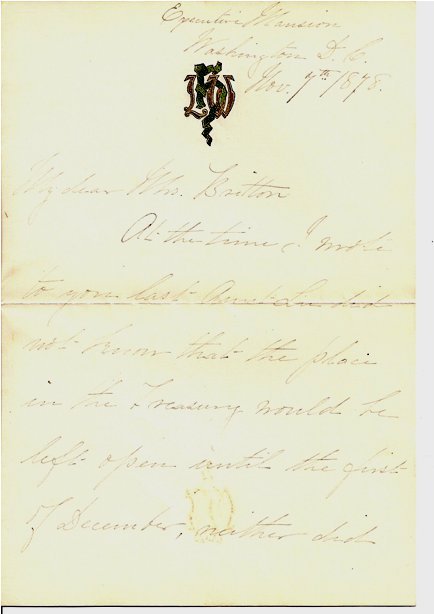 Executive Mansion
Washington D. C.
Nov. 7th 1878.
My dear Mrs. Britton
At the time I wrote
to you last Aunt Lu did
not know that the place
in the Treasury would be
left open until the first
of December, neither did